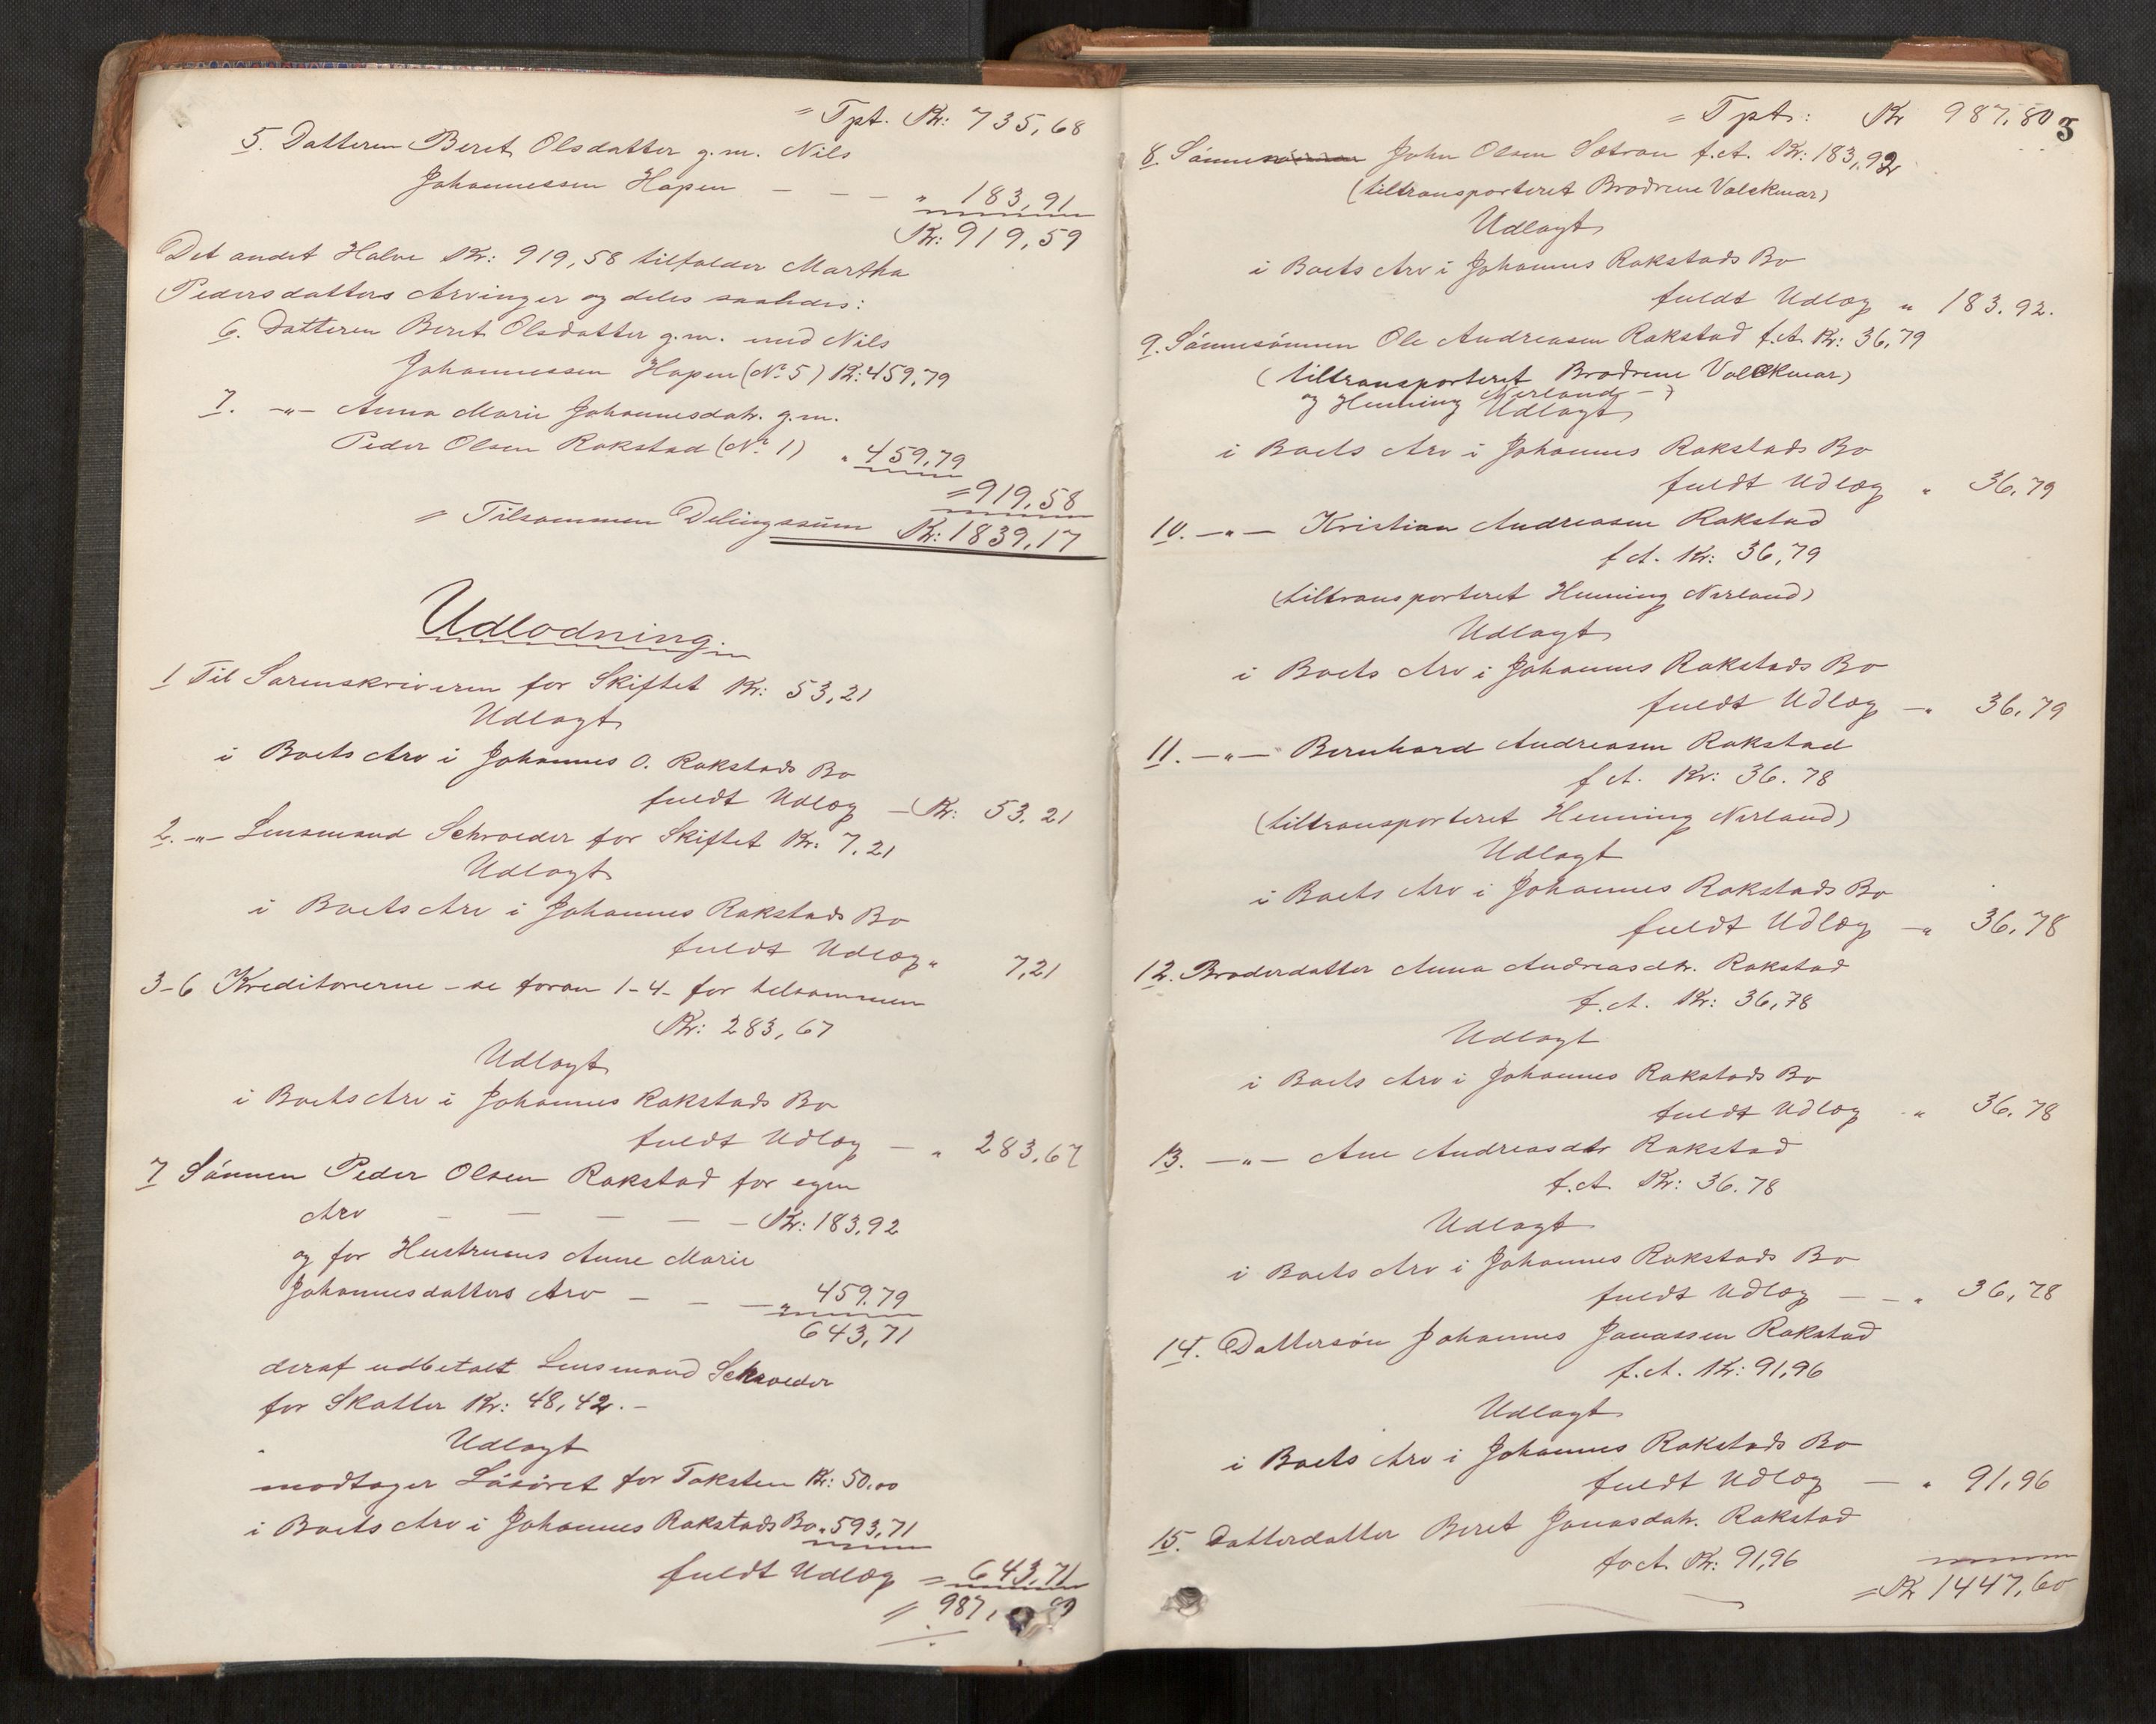 = Tpt. Kr: 735,68
5. Datteren Beret Olsdatter g.m. Nils
Johannessen Hopen - - - „ 183,91
Kr: 919,59
Det andet Halve Kr: 919,58 tilfalder Martha
Pedersdatters Arvinger og deles saaledes:
6. Datteren Beret Olsdatter g.m. med Nils
Johannessen Hopen (No 5) Kr: 459,79
7. -„- Anna Marie Johannesdatr. g.m.
Peder Olsen Rakstad (No 1) „ 459,79
= 919,58
= Tilsammen Delingssum Kr: 1839,17
Udlodning
1 Til Sorenskriveren for Skiftet Kr: 53,21
Udlagt
i Boets Arv i Johannes O. Rakstads Bo
fuldt Udlæg - Kr: 53,21
2. -„- Lensmand Schroeder for Skiftet Kr. 7,21
Udlagt
i Boets Arv i Johannes Rakstads Bo
fuldt Udlæg „ 7,21
3-6 Kreditorerne - se foran 1-4 - for tilsammen
Kr: 283,67
Udlagt
i Boets Arv i Johannes Rakstads Bo
fuldt Udlæg - „ 283,67
7 Sönnen Peder Olsen Rakstad for egen
Arv - - - - - Kr: 183,92
og for Hustruens Anne Marie
Johannesdatters Arv - - - „ 459.79
643,71
deraf udbetalt Lensmand Schroeder
for Skatter Kr: 48,42. -
Udlagt
modtager Lösöret for Taksten Kr: 50,00
i Boets Arv i Johannes Rakstads Bo „ 593,71
fuldt Udlæg = 643,71
= 987,
= Tpt: Kr 987,80
3
8. Sönnen John Olsen Sætran f.A. Kr: 183,92
(tiltransporteret Brödrene Volckmar)
Udlagt
i Boets Arv i Johannes Rakstads Bo
fuldt Udlæg „ 183.92.
9. Sönnesönnen Ole Andreasen Rakstad f.A. Kr: 36,79
(tiltransporteret Brödrene Volckmar)
og Henning Nerland - )
Udlagt
i Boets Arv i Johannes Rakstads Bo
fuldt Udlæg „ 36,79
10. -„- Kristian Andreasen Rakstad
f A. Kr: 36,79
(tiltransporteret Henning Nerland)
Udlagt
i Boets Arv i Johannes Rakstads Bo
fuldt Udlæg - „ 36,79
11. -„- Bernhard Andreasen Rakstad
f A. Kr: 36.78
(tiltransporteret Henning Nerland)
Udlagt
i Boets Arv i Johannes Rakstads Bo
fuldt Udlæg - „ 36,78
12. Broderdatter Anna Andreasdtr. Rakstad
f.A. Kr: 36,78
Udlagt
i Boets Arv i Johannes Rakstads Bo
fuldt Udlæg - „ 36.78
13. -„- Ane Andreasdtr Rakstad
f.A. Kr: 36.78
Udlagt
i Boets Arv i Johannes Rakstads Bo
fuldt Udlæg - - „ 36,78
14. Dattersön Johannes Jonassen Rakstad
f.A. Kr: 91,96
Udlagt
i Boets Arv i Johannes Rakstads Bo
fuldt Udlæg - „ 91,96
15. Datterdatter Beret Jonasdatr. Rakstad
for A. Kr: 91,96
= Kr 1447,60